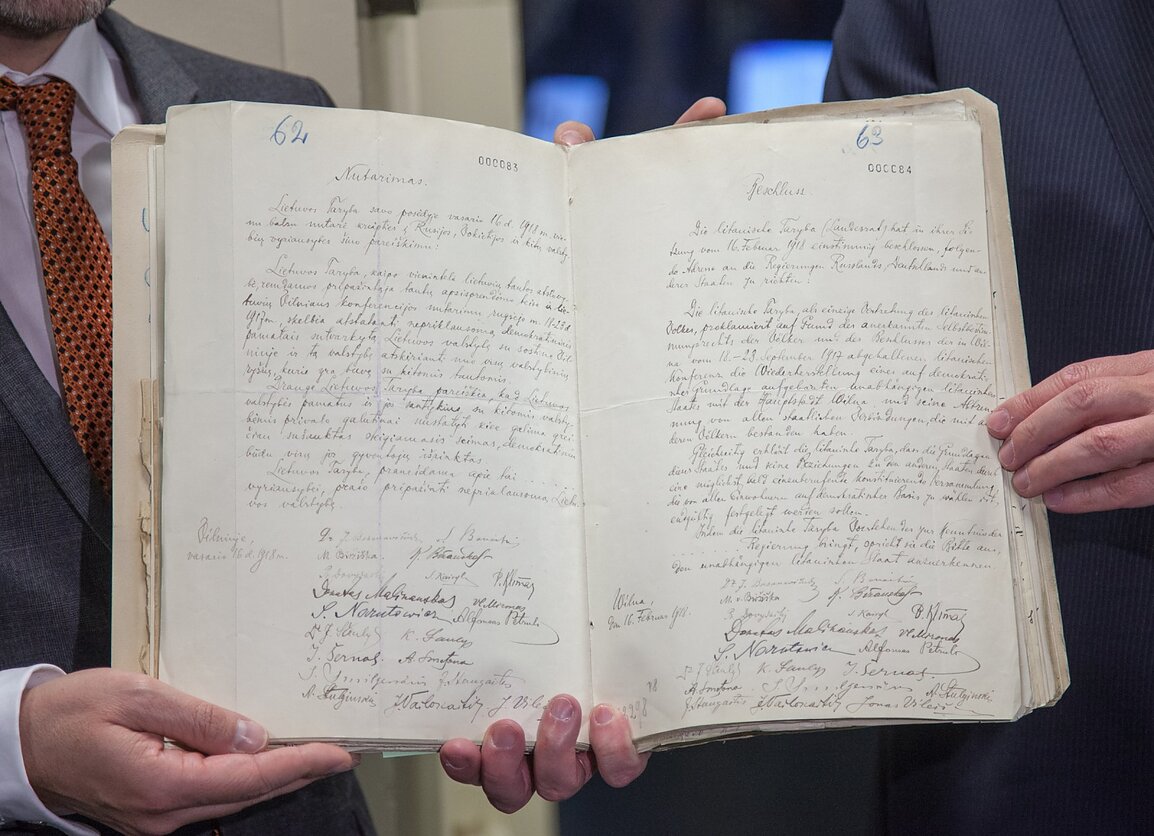 62
000083
Nutarimas.
Lietuvos Taryba savo posėdyje vasario 16 d. 1918 m. vie-
nu balsu nutarė kreiptis į Rusijos, Vokietijos ir kitų valsty-
bių vyriausybes šiuo pareiškimu:
Lietuvos Taryba, kaipo vienintelė lietuvių tautos atstovy-
bė, remdamos pripažintąja tautų apsisprendimo teise ir lie-
tuvių Vilniaus konferencijos nutarimu rugsėjo m. 18-23 d.
1917 m., skelbia atstatanti nepriklausomą demokratiniais
pamatais sutvarkytą Lietuvos valstybę su sostine Vil-
niuje ir tą valstybę atskirianti nuo visų valstybinių
ryšių, kurie yra buvę su kitomis tautomis.
Drauge Lietuvos Taryba pareiškia, kad Lietuvos
valstybės pamatus ir jos santykius su kitomis valsty-
bėmis privalo galutinai nustatyti kiek galima grei-
čiau sušauktas steigiamasis seimas, demokratiniu
būdu visų jos gyventojų išrinktas.
Lietuvos Taryba, pranešdama apie tai
vyriausybei, prašo pripažinti nepriklausomą Lietu-
vos valstybę.
Vilniuje,
vasario 16 d. 1918 m.
Dr. J. Basanavičius S. Banaitis
M. Biržiška K. Bizauskas
P. Dovydaitis S. Kairys P. Klimas
Donatas Malinauskas Vl. Mironas
S. Narutowicz Alfonsas Petrulis
Dr J. Šaulys K. Šaulys
J. Šernas A. Smetona
J. Smilgevičius J. Staugaitis
A. Stulginskis J. Vailokaitis J. Vileišis
63
000084
Beschluss.
Die litauische Taryba (Landesrat) hat in ihrer Sit-
zung vom 16. Februar 1918 einstimmig beschlossen, folgen-
de Adresse an die Regierungen Russlands, Deutschlands und an-
derer Staaten zu richten:
Die litauische Taryba als einzige Vertretung des litauischen
Volkes, proklamiert auf Grund des anerkannten Selbstbestim-
mungsrechts der Völker und des Beschlusses der in Wil-
na vom 18.-23. September 1917 abgehaltenen litauischen
Konferenz die Wiederherstellung eines auf demokrati-
scher Grundlage aufgebauten unabhängigen litauischen
Staats mit der Hauptstadt Wilna und seine Abtren-
nung von allen staatlichen Verbindungen, die mit an-
deren Völkern bestanden haben.
Gleichzeitig erklärt die litauische Taryba, dass die Grundlagen
dieses Staates und seine Beziehungen zu den anderen Staaten durch
eine möglichst bald einzuberufende konstituierende Versammlung,
die von allen Einwohnern auf demokratischer Basis zu wählen ist,
endgültig festgelegt werden sollen.
Indem die litauische Taryba Vorstehendes zur Kenntnis der
Regierung bringt, spricht sie die Bitte aus,
den unabhängigen litauischen Staat anzuerkennen.
Wilna,
den 16. Februar 1918.
Dr. J. Basanavičius S. Banaitis
M. v. Biržiška K. Bizauskas
P. Dovydaitis S. Kairys P. Klimas
Donatas Malinauskas Vl. Mironas
S. Narutowicz Alfonsas Petrulis
Dr J. Šaulys K. Šaulys J. Šernas
A. Smetona J. Smilgevičius A. Stulginskis
J. Staugaitis J. Vailokaitis Jonas Vileišis